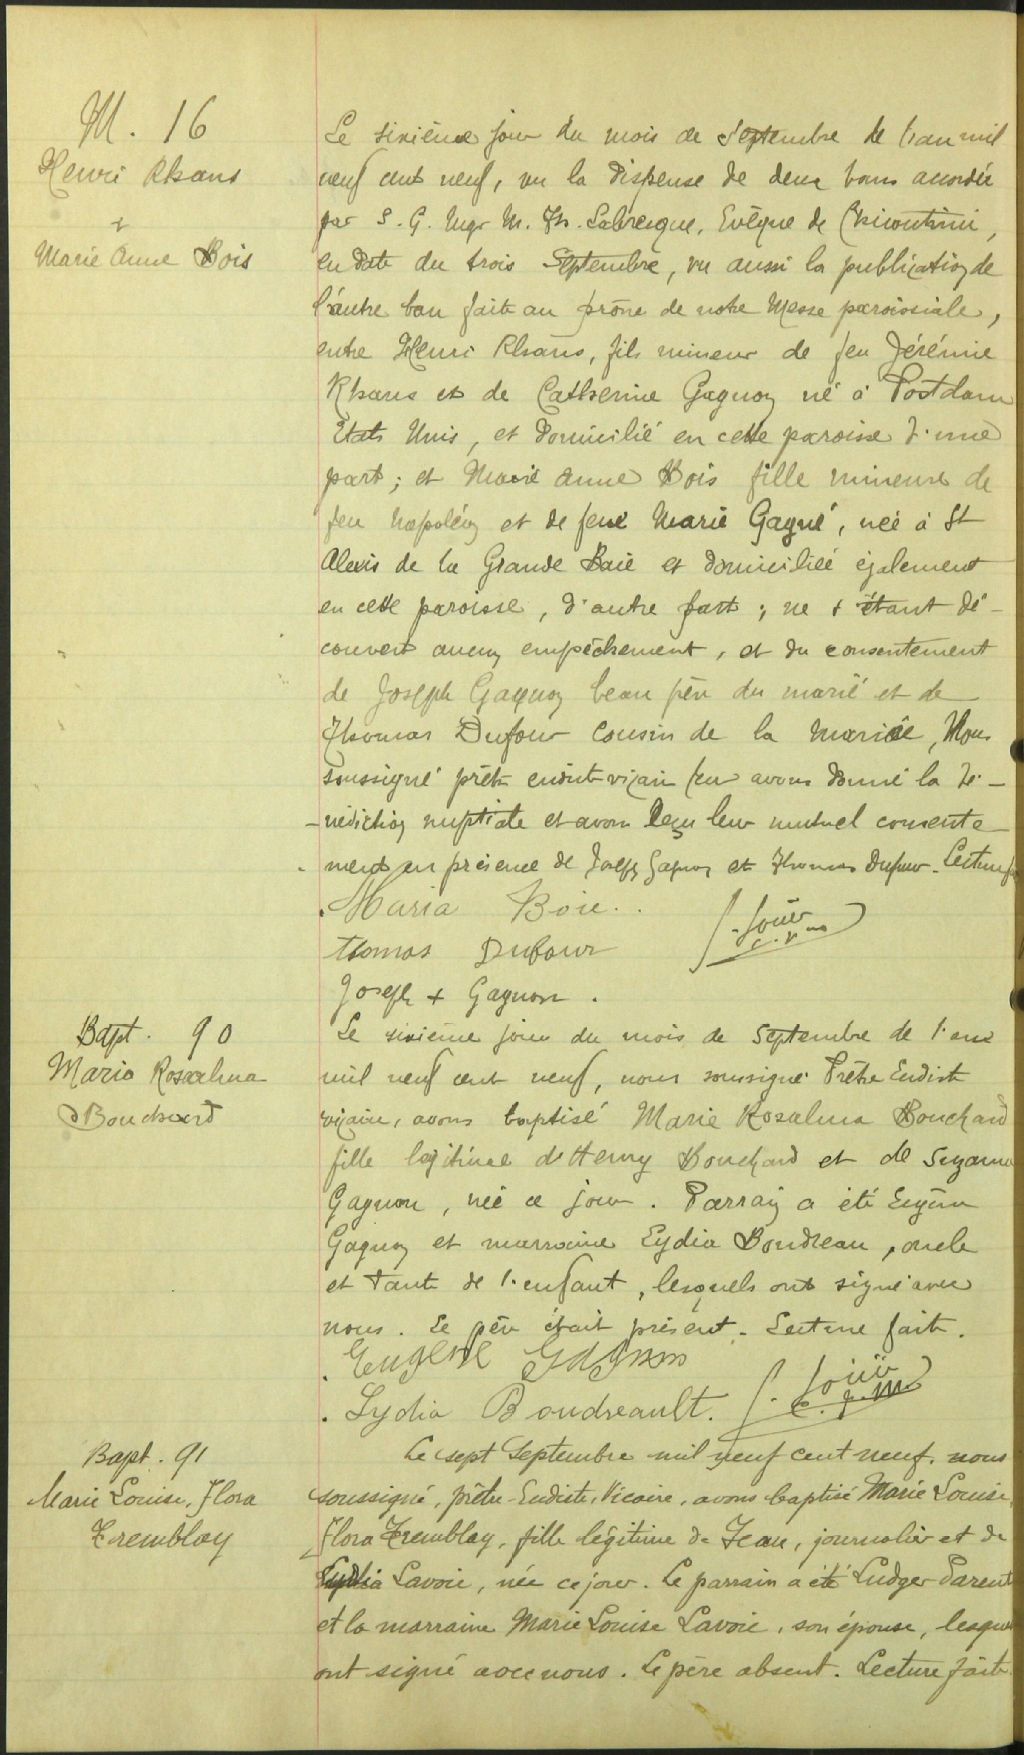 M. 16
Henri Rhans
+
Marie Anne Bois
Le sixième jour du mois de septembre de l'an mil
neuf cent neuf, vu la dispense de deux bans accordée
par S. G. Mgr M. Th. Labrecque, Evêque de Chicoutimi,
en date du trois Septembre, vu aussi la publication de
l'autre ban faite au prône de notre Messe paroissiale,
entre Henri Rhans, fils mineur de feu Jérémie
Rhans et de Catherine Gagnon né à Postdam
Etats Unis, et domicilié en cette paroisse d'une
part; et Marie Anne Bois fille mineure de
feu Napoléon et de feue Marie Gagné, née à St
Alexis de la Grande Baie et domiciliée également
en cette paroisse, d'autre part; ne s'étant dé-
couvert aucun empêchement, et du consentement
de Joseph Gagnon beau père du marié et de
Thomas Dufour cousin de la mariée, Nous
soussigné prêtre eudiste vicaire leur avons donné la bé-
-nédiction nuptiale et avons reçu leur mutuel consente-
ment en présence de Joseph Gagnon et Thomas Dufour. Lecture f
Maria Boie.
Thomas Dufour
Joseph + Gagnon.
Bapt. 90
Marie Rosalma
Bouchard
Le sixième jour du mois de Septembre de l'an
mil neuf cent neuf, nous soussigné Prêtre Eudiste
vicaire, avons baptisé Marie Rosalma Bouchard
fille légitime d'Henry Bouchard et de Suzanne
Gagnon, née ce jour. Parrain a été Eugène
Gagnon et marraine Lydia Boudreau, oncle
et tante de l'enfant, lesquels ont signé avec
nous. Le père était présent. Lecture faite.
Eugene Gagnon
Lydia Boudreault.
Bapt. 91
Marie Louise, Flora
Tremblay
Le sept Septembre mil neuf cent neuf, nous
soussigné, prêtre-Eudiste, Vicaire, avons baptisé Marie Louise,
Flora Tremblay, fille légitime de Jean, journalier et de
Lydia Lavoie, née ce jour. Le parrain a été Ludger Parent
et la marraine Marie Louise Lavoie, son épouse, lesquels
ont signé avec nous. Le père absent. Lecture faite.